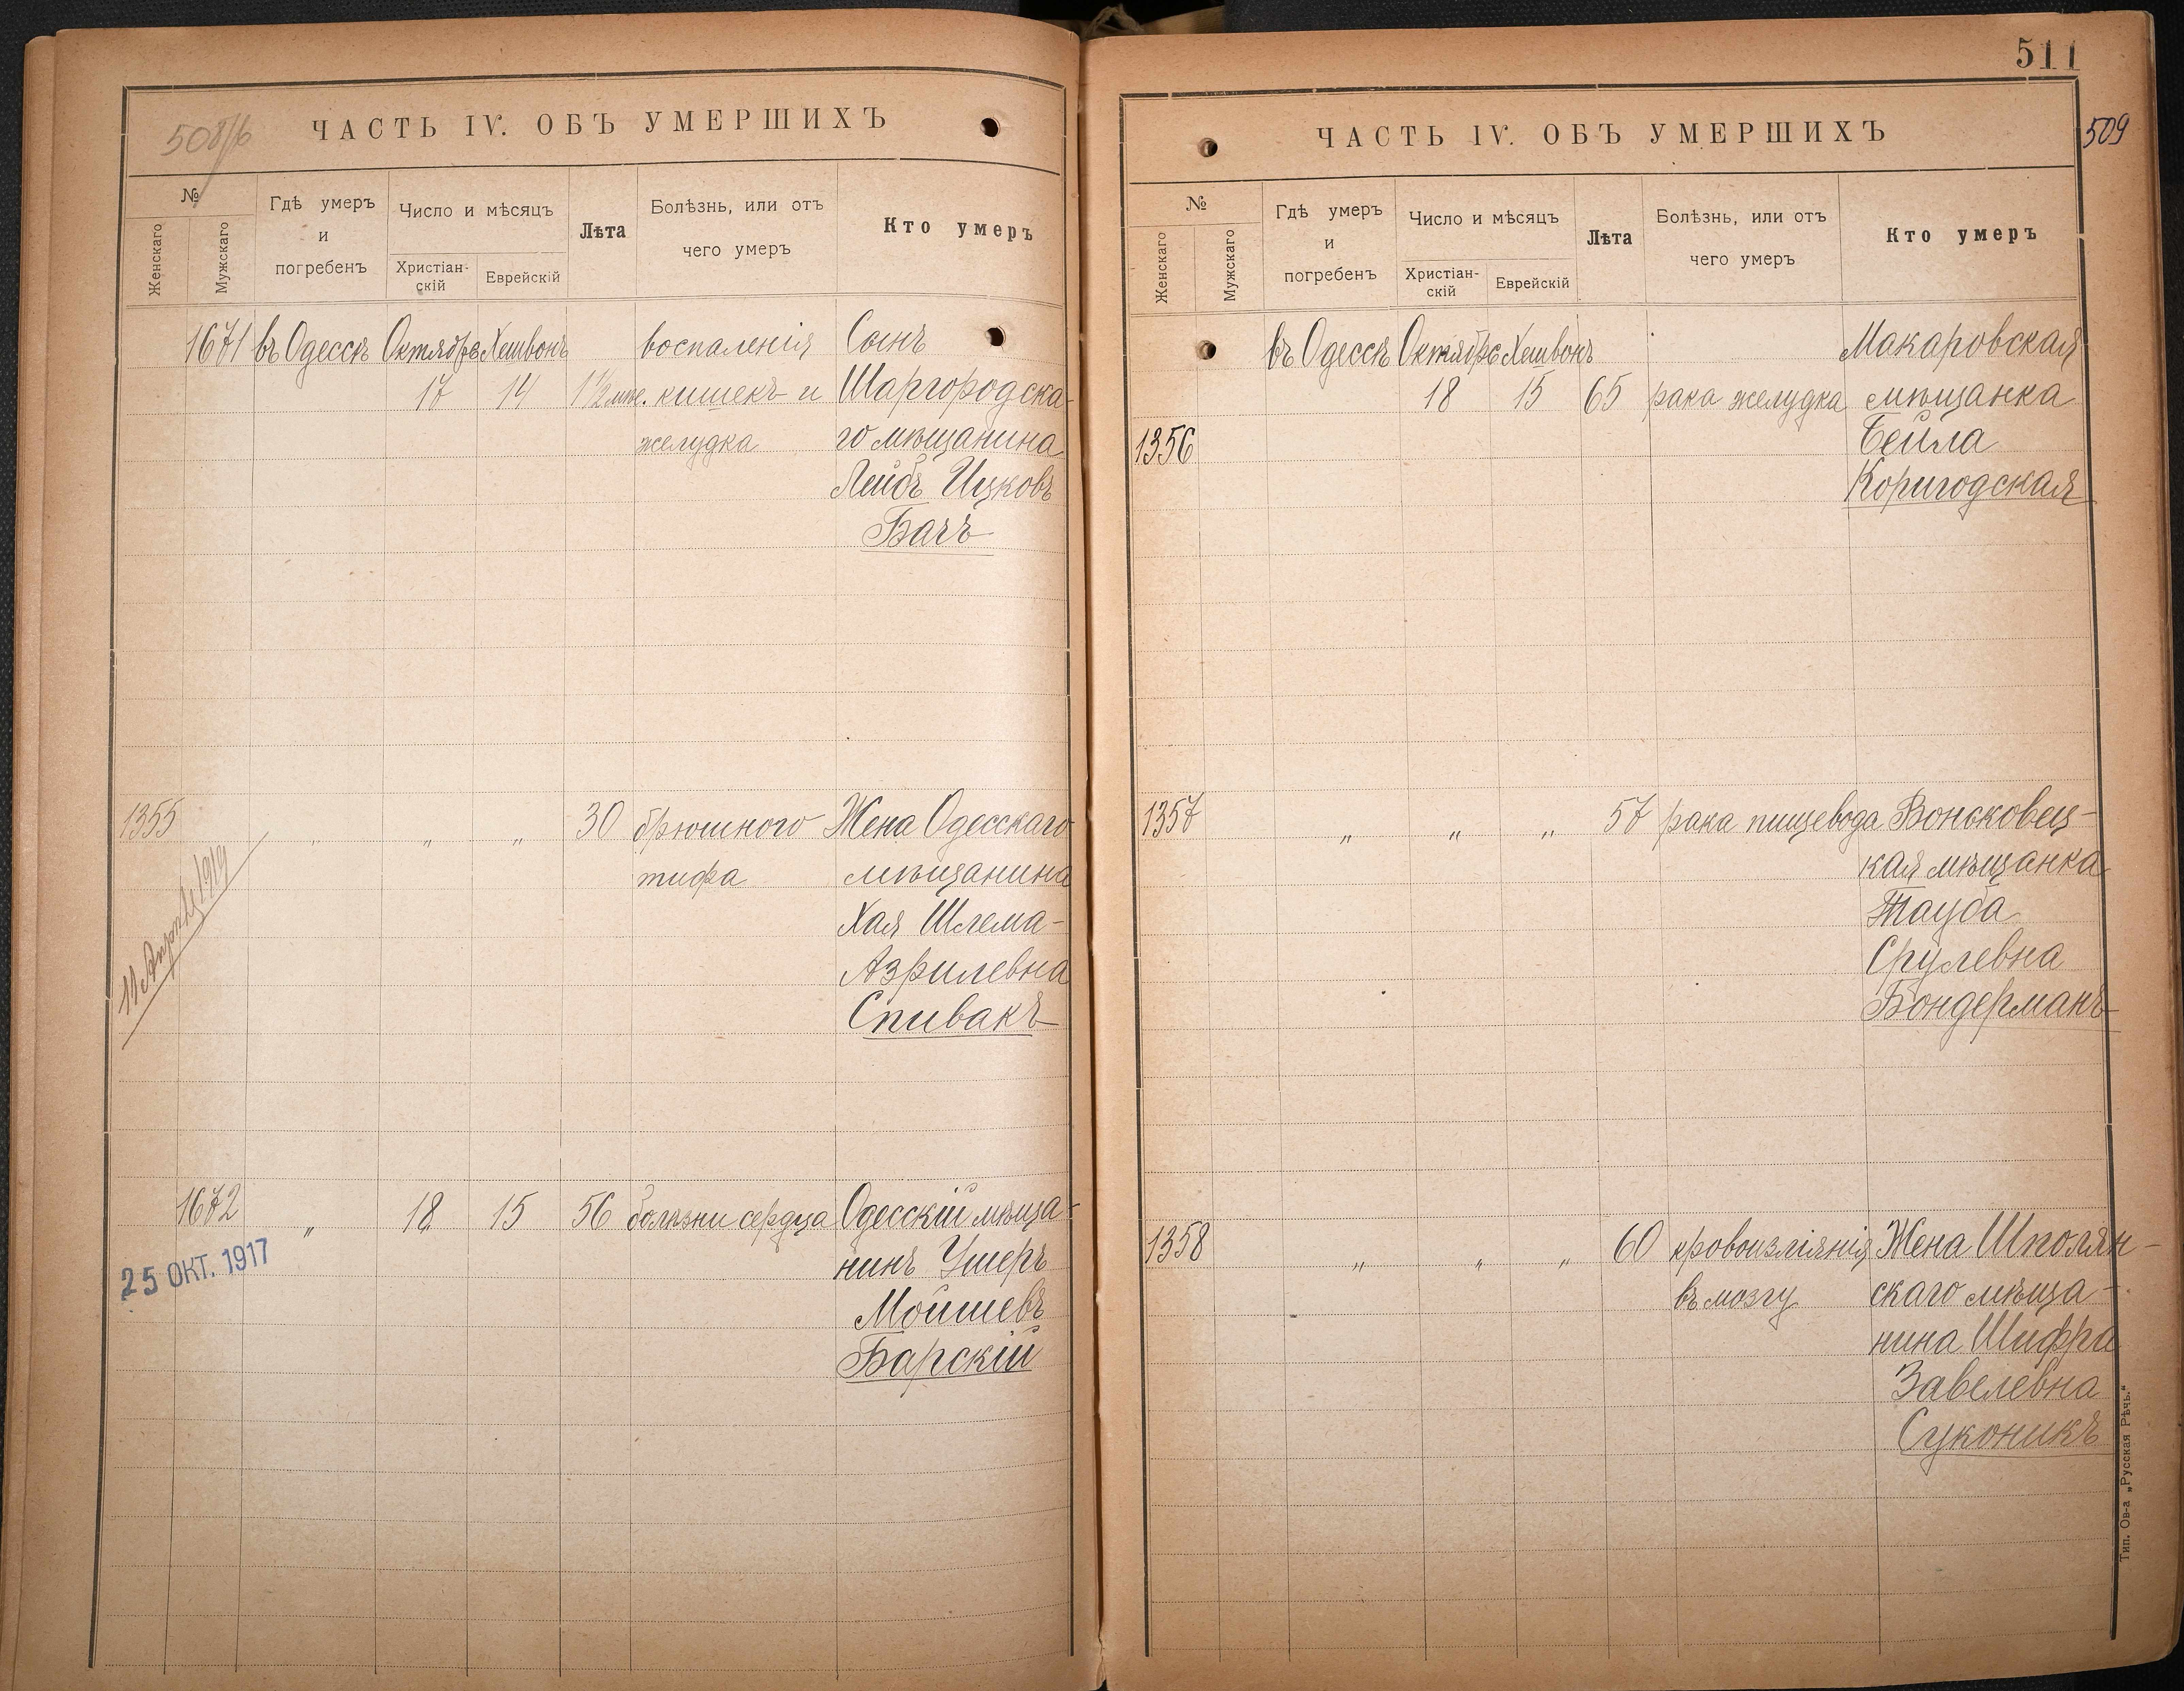 508/б
ЧАСТЬ IV. ОБЪ УМЕРШИХЪ
№
Женскаго
Мужскаго
Гдѣ умеръ
и
погребенъ
Число и мѣсяцъ
Христіан-
скій
Еврейскій
Лѣта
Болѣзнь, или отъ
чего умеръ
Кто умеръ
1671 въ Одессѣ Октябрь Хешвонъ воспаленія Сынъ
17 14 1½ мѣс. кишекъ и Шаргородска-
желудка го мѣщанина
Лейбъ Ицковъ
Бачъ
1355 „ „ „ 30 брюшного Жена Одесскаго
тифа мѣщанина
Хая Шлема-
Азрилевна
Спивакъ
1919
1672 „ 18 15 56 болѣзни сердца Одесскій мѣща-
нинъ Ушеръ
Мойшевъ
Барскій
25 ОКТ. 1917
511
509
ЧАСТЬ IV. ОБЪ УМЕРШИХЪ
№
Женскаго
Мужскаго
Гдѣ умеръ
и
погребенъ
Число и мѣсяцъ
Христіан-
скій
Еврейскій
Лѣта
Болѣзнь, или отъ
чего умеръ
Кто умеръ
въ Одессѣ Октябрь Хешвонъ Макаровская
18 15 65 рака желудка мѣщанка
1356 Бейла
Коригодская
1357 „ „ „ 57 рака пищевода Вонсковец-
кая мѣщанка
Тауба
Срулевна
Бондерманъ
1358 „ „ „ 60 кровоизліянія Жена Шполян-
въ мозгу скаго мѣща-
нина Шифра
Завелевна
Суконикъ
Тип. Ов-а „Русская Рѣчь."